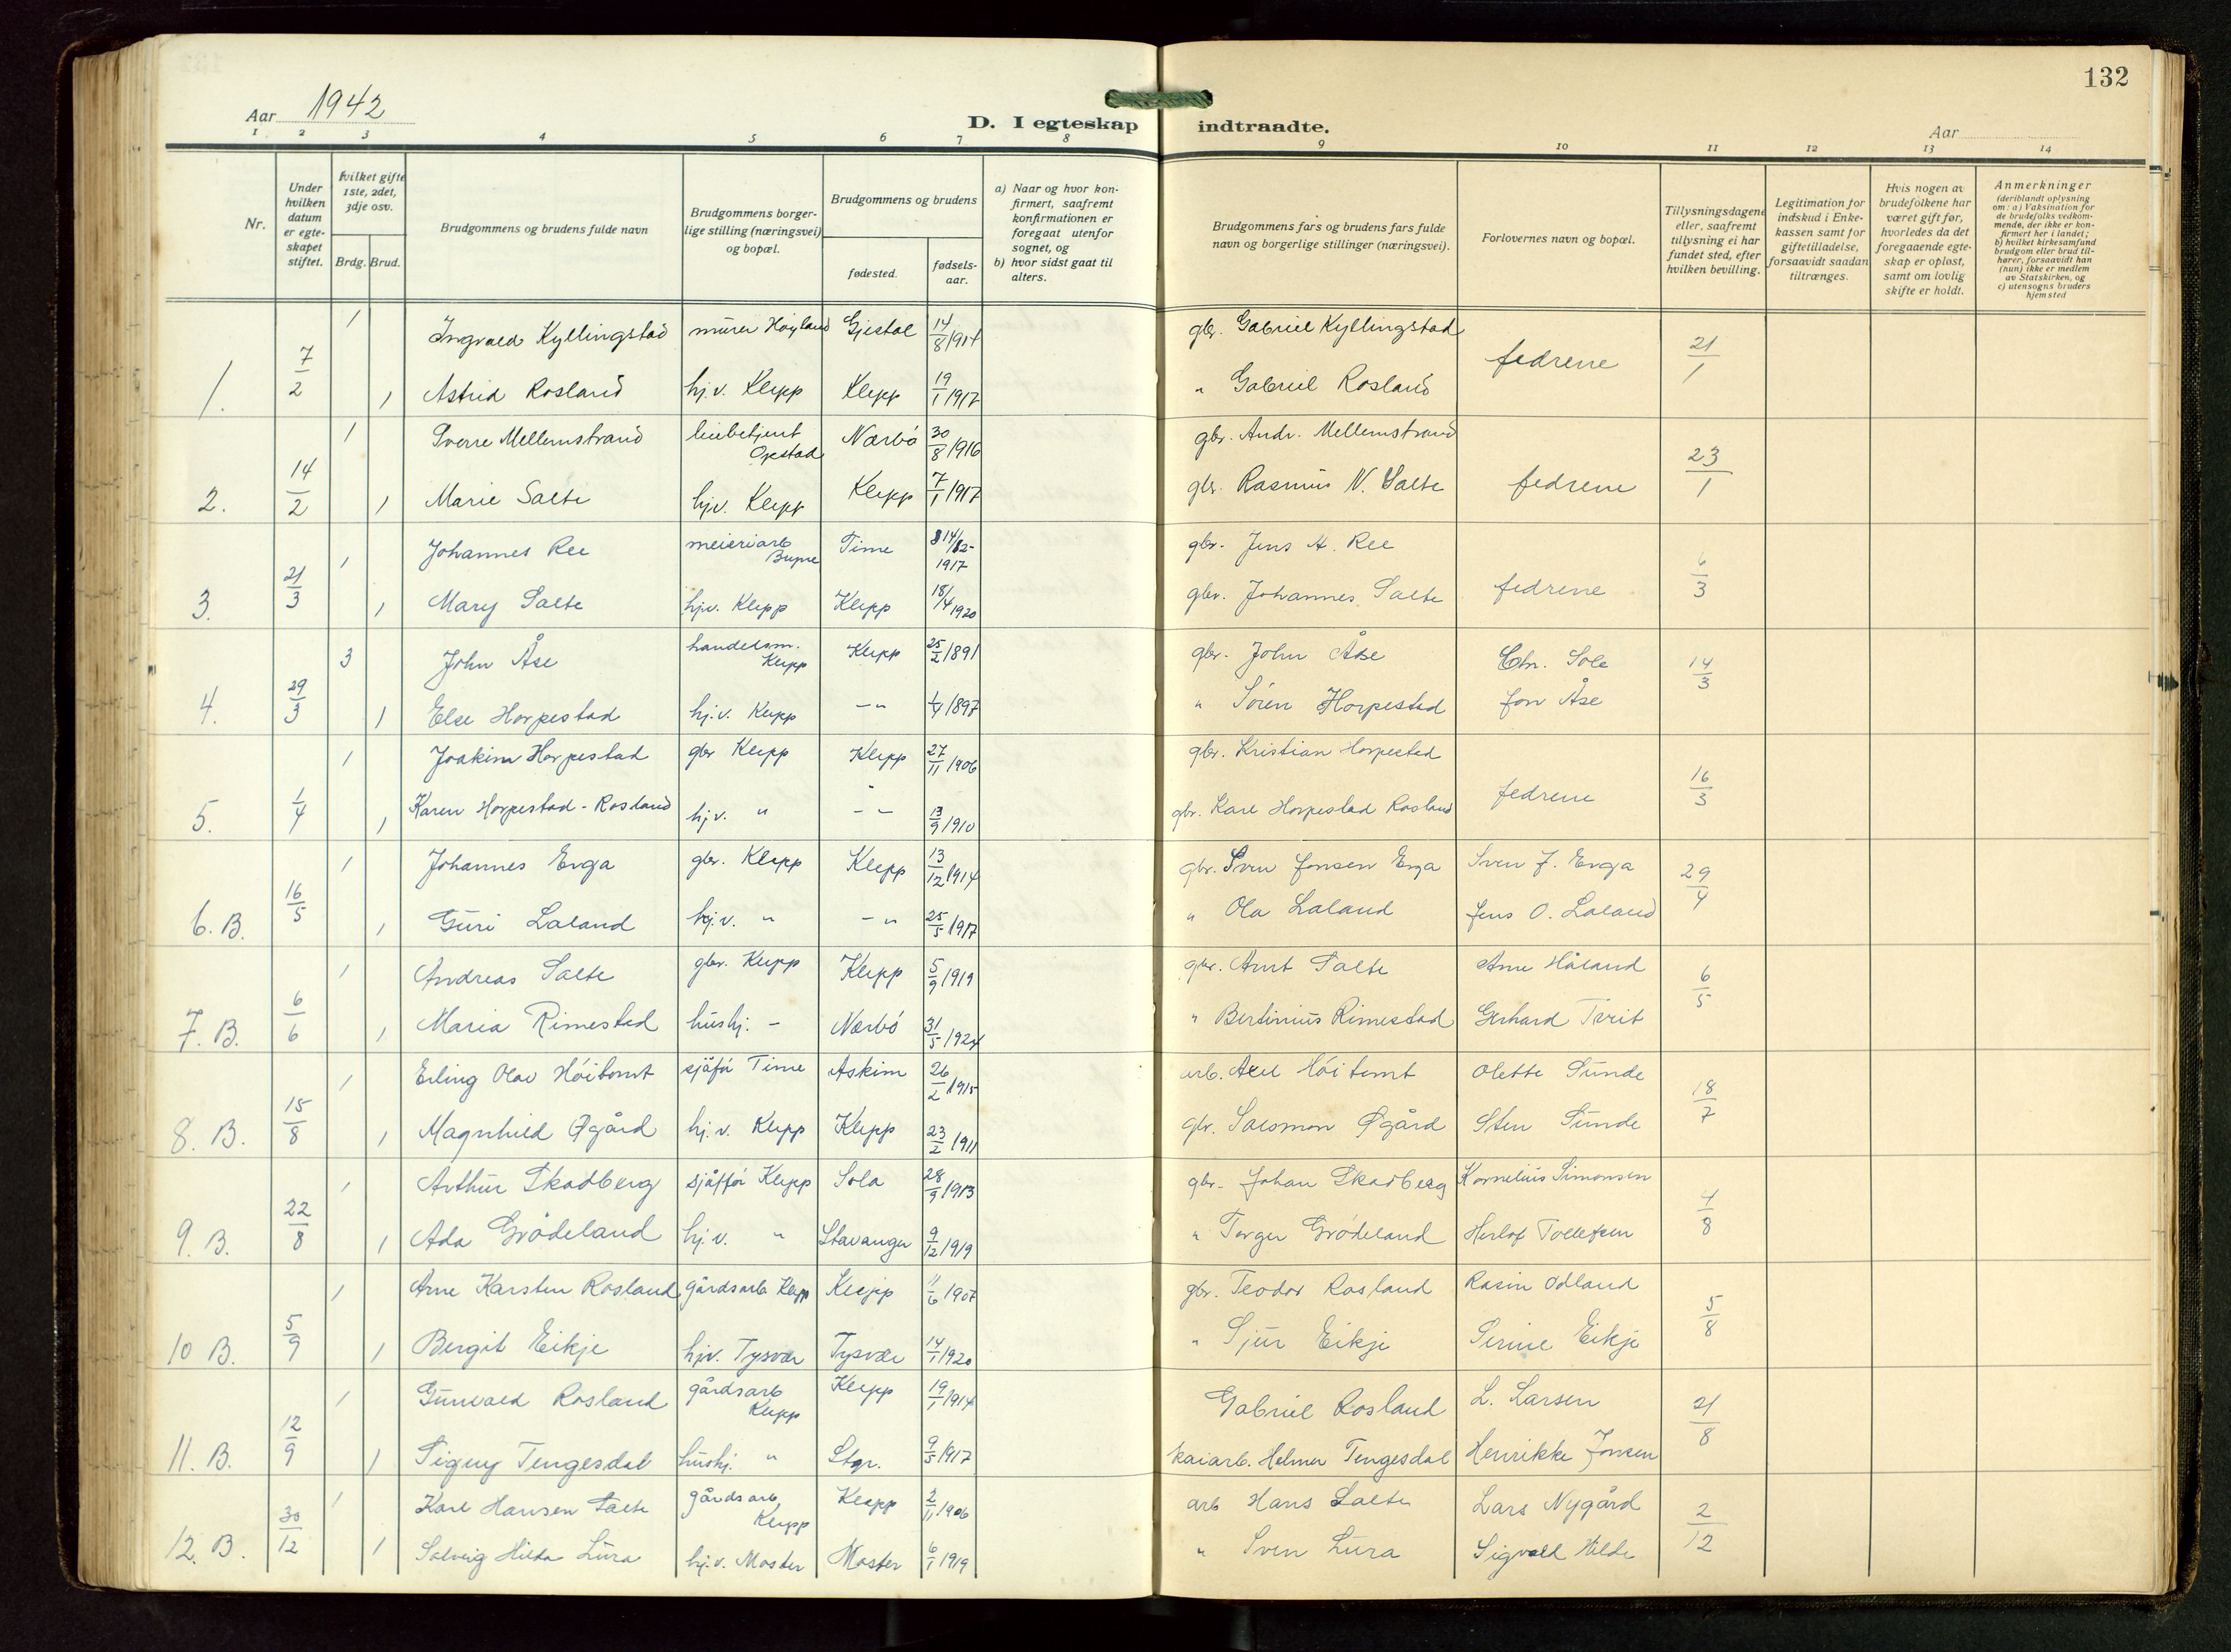 132
Aar 1942
D. I egteskap indtraadte.
Aar
1 2 3 4 5 6 7 8 9 10 11 12 13 14
Nr.
Under hvilken datum er egteskapet stiftet.
hvilket gifte 1ste, 2det, 3dje osv.
Brdg. Brud.
Brudgommens og brudens fulde navn
Brudgommens borgerlige stilling (næringsvei) og bopæl.
Brudgommens og brudens
fødested.
fødselsaar.
a) Naar og hvor konfirmert, saafremt konfirmationen er foregaat utenfor sognet, og
b) hvor sidst gaat til alters.
Brudgommens fars og brudens fars fulde navn og borgerlige stillinger (næringsvei).
Forlovernes navn og bopæl.
Tillysningsdagene eller, saafremt tillysning ei har fundet sted, efter hvilken bevilling.
Legitimation for indskud i Enkekassen samt for giftetilladelse, forsaavidt saadan tiltrænges.
Hvis nogen av brudefolkene har været gift før, hvorledes da det foregaaende egteskap er opløst, samt om lovlig skifte er holdt.
Anmerkninger (deriblandt oplysning om: a) Vaksination for de brudefolks vedkommende, der ikke er konfirmert her i landet; b) hvilket kirkesamfund brudgom eller brud tilhører, forsaavidt han (hun) ikke er medlem av Statskirken, og c) utensogns bruders hjemsted
1. 7/2 1 Ingvald Kyllingstad murer Høyland Gjestal 14/8 1914 gbr. Gabriel Kyllingstad fedrene 21/1
1 Astrid Rosland hj.v. Klepp Klepp 19/1 1917 " Gabriel Rosland
2. 14/2 1 Sverre Mellemstrand Nærbø 30/8 1916 gbr. Andr. Mellemstrand fedrene 23/1
1 Marie Salte hj.v. Klepp Klepp 7/1 1917 gbr. Rasmus N. Salte
3. 21/3 1 Johannes Ree meieriarb Time 1917 gbr. Jens A. Ree fedrene 6/3
1 Mary Salte hj.v. Klepp Klepp 18/4 1920 gbr. Johannes Salte
4. 29/3 3 John Åse handelsm. Klepp Klepp 25/2 1891 gbr. John Åse Chr. Sole 14/3
1 Else Horpestad hj.v. Klepp – " 1/4 1897 " Sören Horpestad Jon Åse
5. 1/4 1 Joakim Horpestad gbr Klepp Klepp 27/11 1906 gbr. Kristian Horpestad fedrene 16/3
1 Karen Horpestad-Rosland hj.v. " – – 13/9 1910 gbr. Karl Horpestad Rosland
6. B. 16/5 1 Johannes Erga gbr. Klepp Klepp 13/12 1914 gbr. Sven Jonsen Erga Sven J. Erga 29/4
1 Guri Laland hj.v. " – " 25/5 1917 " Ola Laland Jens O. Laland
7. B. 6/6 1 Andreas Salte gbr. Klepp Klepp 5/9 1919 gbr. Arnt Salte Arne Håland 6/5
1 Maria Rimestad hushj. – Nærbö 31/5 1924 " Bertinius Rimestad Gerhard
8. B. 15/8 1 Erling Olav Höitomt sjåfør Time Askim 26/2 1915 arb. Axel Höitomt Olette Sunde 18/7
1 Magnhild Øgård hj.v. Klepp Klepp 23/2 1911 gbr. Salomon Øgård Sten Sunde
9. B. 22/8 1 Arthur Skadberg sjåffør Klepp Sola 28/9 1913 gbr. Johan Skadberg Kornelius Simonsen 4/8
1 Ada Grödeland hj.v. " Stavanger 9/12 1919 " Torger Grödeland Herlof Tollefsen
10 B. 5/9 1 Arne Karsten Rosland gårdsarb Klepp Klepp 11/6 1907 gbr. Teodor Rosland Rasin Odland 5/8
1 Bergit Eikje hjv. Tysvær Tysvær 14/1 1920 " Sjur Eikje Serine Eikje
11. B. 12/9 1 Gunvald Rosland gårdsarb Klepp Klepp 19/1 1914 Gabriel Rosland L. Larsen 21/8
1 Signy Tengesdal hushj. " Stgr. 9/5 1917 kaiarb. Helmer Tengesdal Henrikke Jonsen
12. B. 30/12 1 Karl Hansen Salte gårdsarb. Klepp Klepp 2/11 1906 arb Hans Salte Lars Nygård 2/12
1 Solveig Hilda Lura hj.v. Moster Moster 6/1 1919 " Sven Lura Sigvald Hilde